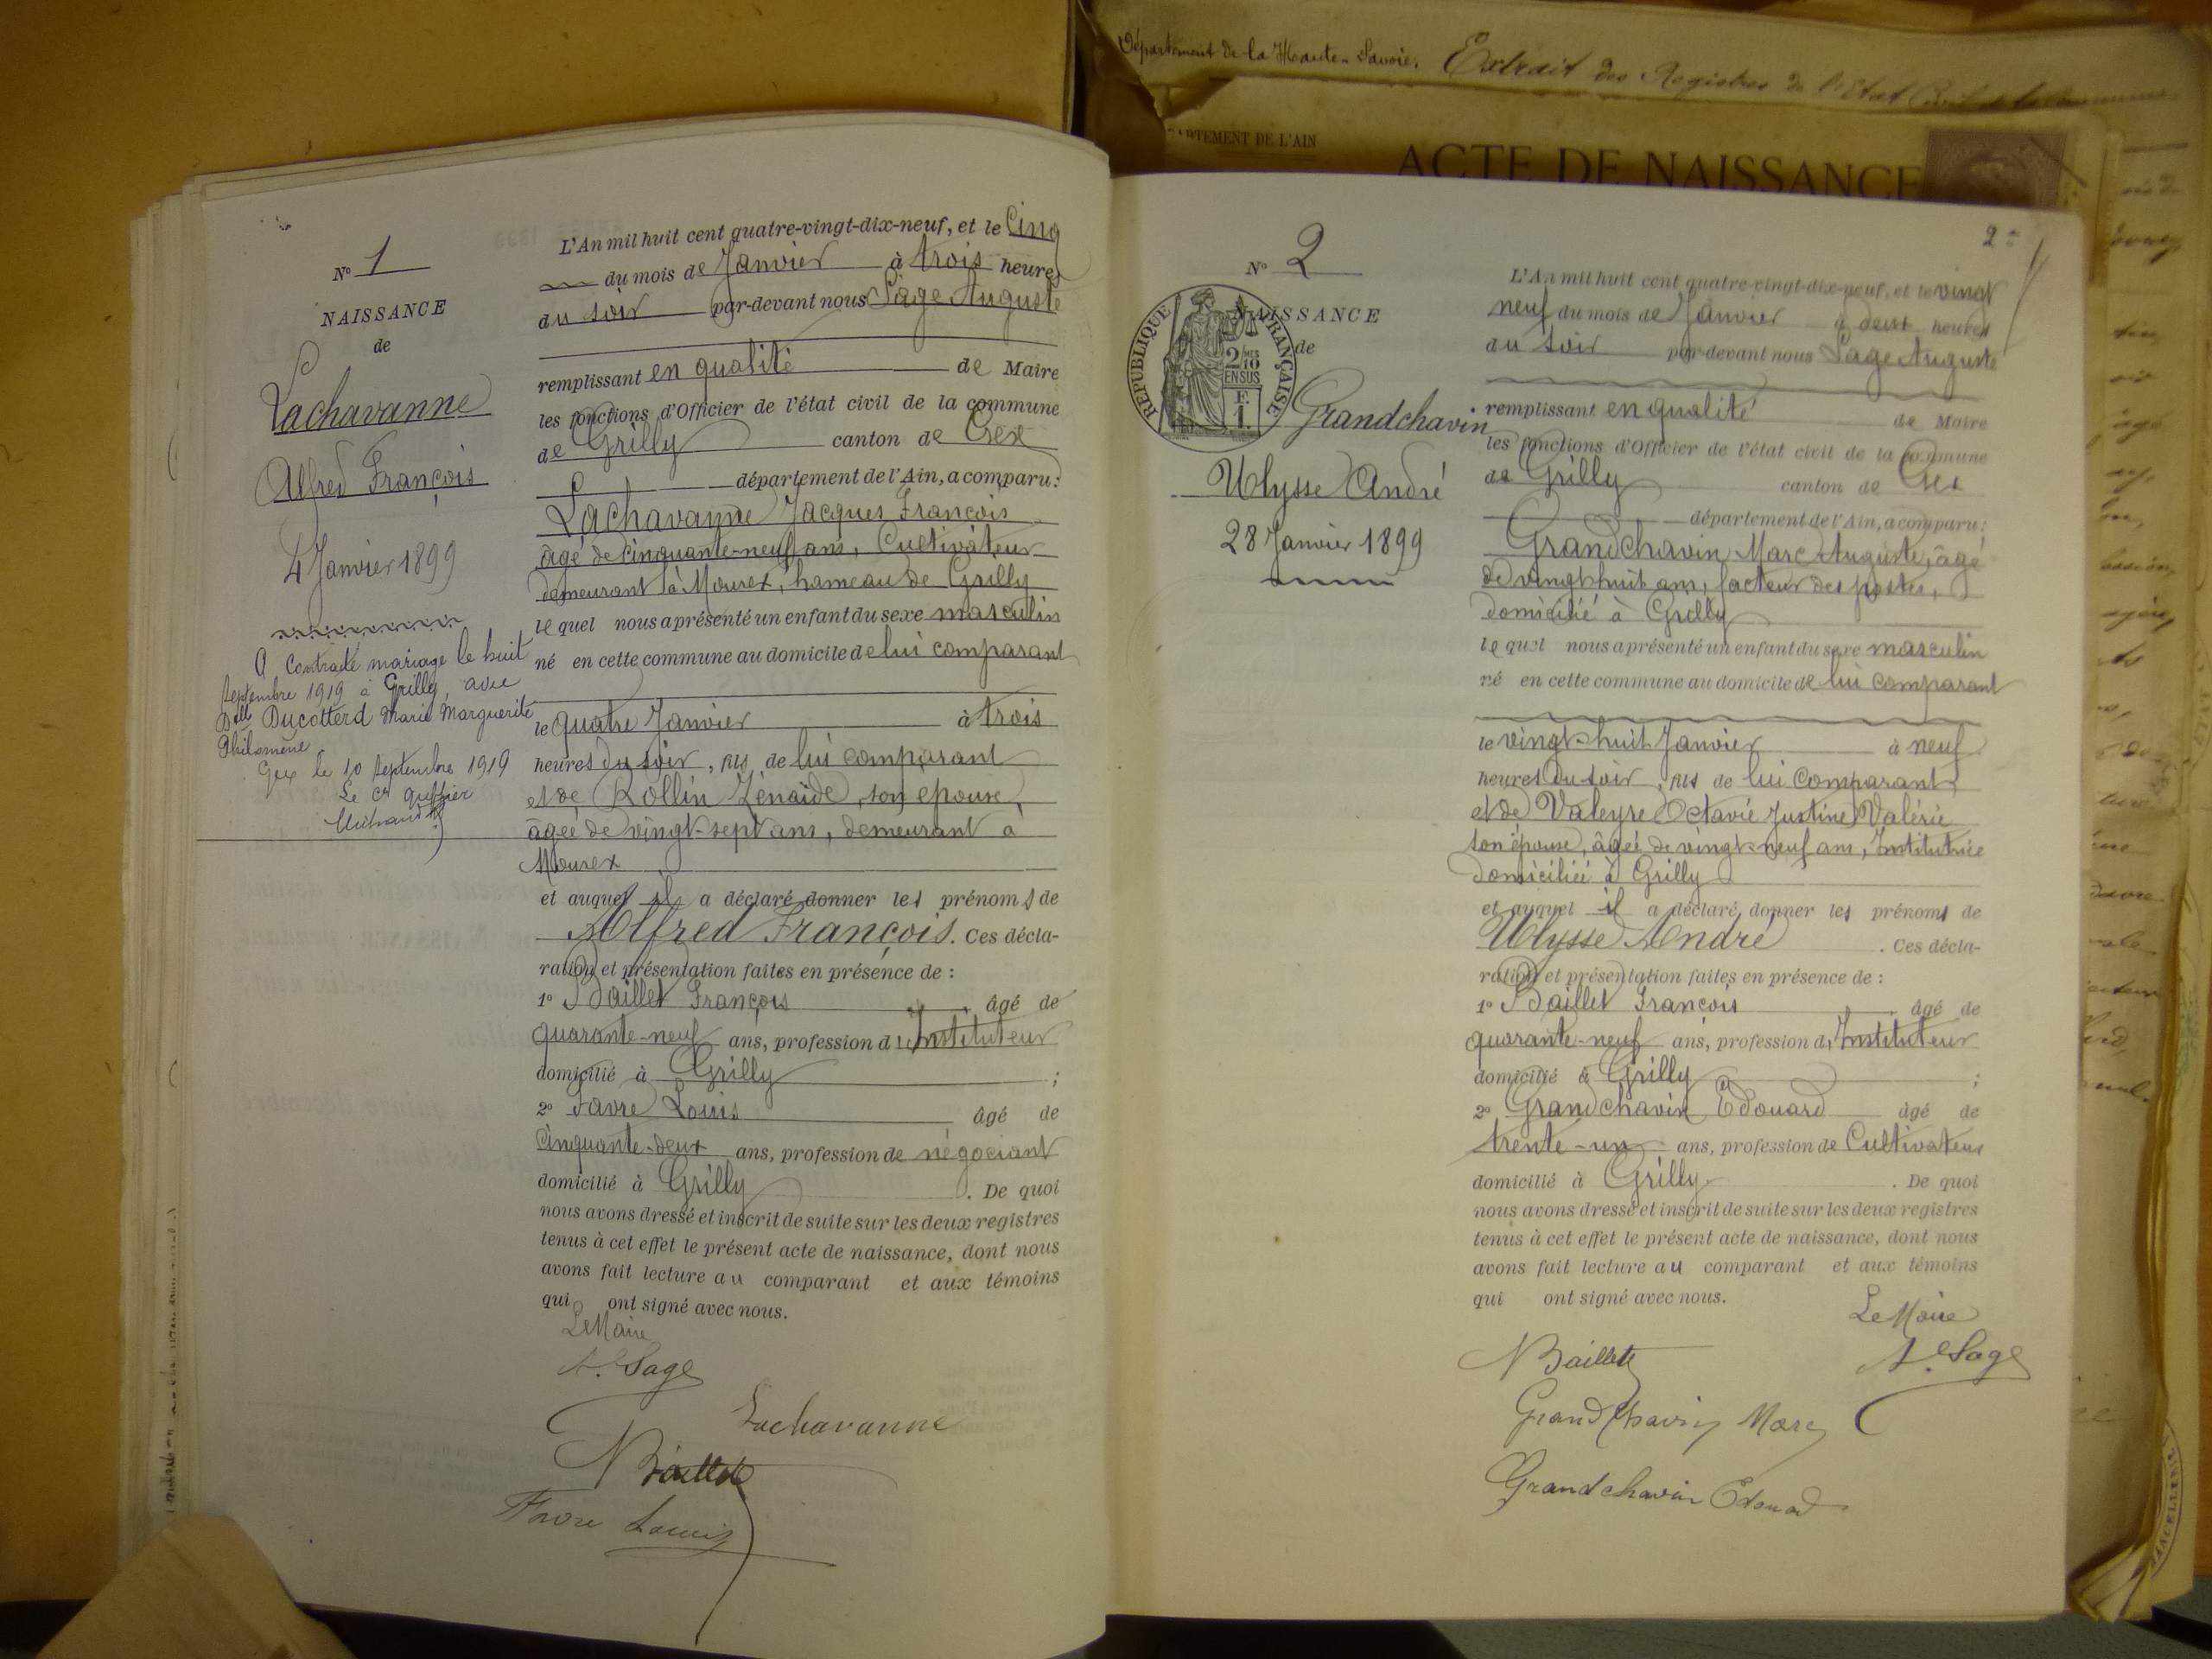 Département de la Haute-Savoie. Extrait des Registres de l'Etat Civil de la
DEPARTEMENT DE L'AIN
ACTE DE NAISSANCE
N° 1
NAISSANCE
de
Lachavanne
Alfred François
4 Janvier 1899
A contracté mariage le huit
septembre 1919 à Grilly, avec
Dlle Ducotterd Marie Marguerite
Philomène
Gex le 10 septembre 1919
Le cis greffier
L'An mil huit cent quatre-vingt-dix-neuf, et le Cinq
du mois de Janvier à trois heures
du soir par-devant nous Sage Auguste
remplissant en qualité de Maire
les fonctions d'Officier de l'état civil de la commune
de Grilly canton de Gex
département de l'Ain, a comparu:
Lachavanne Jacques François
âgé de cinquante-neuf ans, Cultivateur
demeurant à Mourex, hameau de Grilly
lequel nous a présenté un enfant du sexe masculin
né en cette commune au domicile de lui comparant
le quatre Janvier à trois
heures du soir, fils de lui comparant
et de Rollin Zénaïde, son épouse,
âgée de vingt-sept ans, demeurant à
Mourex
et auquel il a déclaré donner les prénoms de
Alfred François. Ces décla-
ration et présentation faites en présence de :
1° Baillet François, âgé de
quarante-neuf ans, profession d'Instituteur
domicilié à Grilly ;
2° Favre Louis âgé de
cinquante-deux ans, profession de négociant
domicilié à Grilly. De quoi
nous avons dressé et inscrit de suite sur les deux registres
tenus à cet effet le présent acte de naissance, dont nous
avons fait lecture au comparant et aux témoins
qui ont signé avec nous.
Le Maire
A. Sage
Lachavanne
Baillet
Favre Louis
2
N° 2
NAISSANCE
de
RÉPUBLIQUE FRANÇAISE
2/10 MES
EN SUS
F.
1.
Grandchavin
Ulysse André
28 Janvier 1899
L'An mil huit cent quatre-vingt-dix-neuf, et le vingt
neuf du mois de Janvier à deux heures
du soir par-devant nous Sage Auguste
remplissant en qualité de Maire
les fonctions d'Officier de l'état civil de la commune
de Grilly canton de Gex
département de l'Ain, a comparu:
Grandchavin Marc Auguste, âgé
de vingt-huit ans, facteur des postes,
domicilié à Grilly
lequel nous a présenté un enfant du sexe masculin
né en cette commune au domicile de lui comparant
le vingt-huit Janvier à neuf
heures du soir, fils de lui comparant
et de Valeyre Octavie Justine Valérie
son épouse, âgée de vingt-neuf ans, Institutrice
domiciliée à Grilly
et auquel il a déclaré donner les prénoms de
Ulysse André. Ces décla-
ration et présentation faites en présence de :
1° Baillet François, âgé de
quarante-neuf ans, profession d'Instituteur
domicilié à Grilly ;
2° Grandchavin Edouard âgé de
trente-un ans, profession de Cultivateur
domicilié à Grilly. De quoi
nous avons dressé et inscrit de suite sur les deux registres
tenus à cet effet le présent acte de naissance, dont nous
avons fait lecture au comparant et aux témoins
qui ont signé avec nous.
Le Maire
Baillet A. Sage
Grandchavin Marc
Grandchavin Edouard